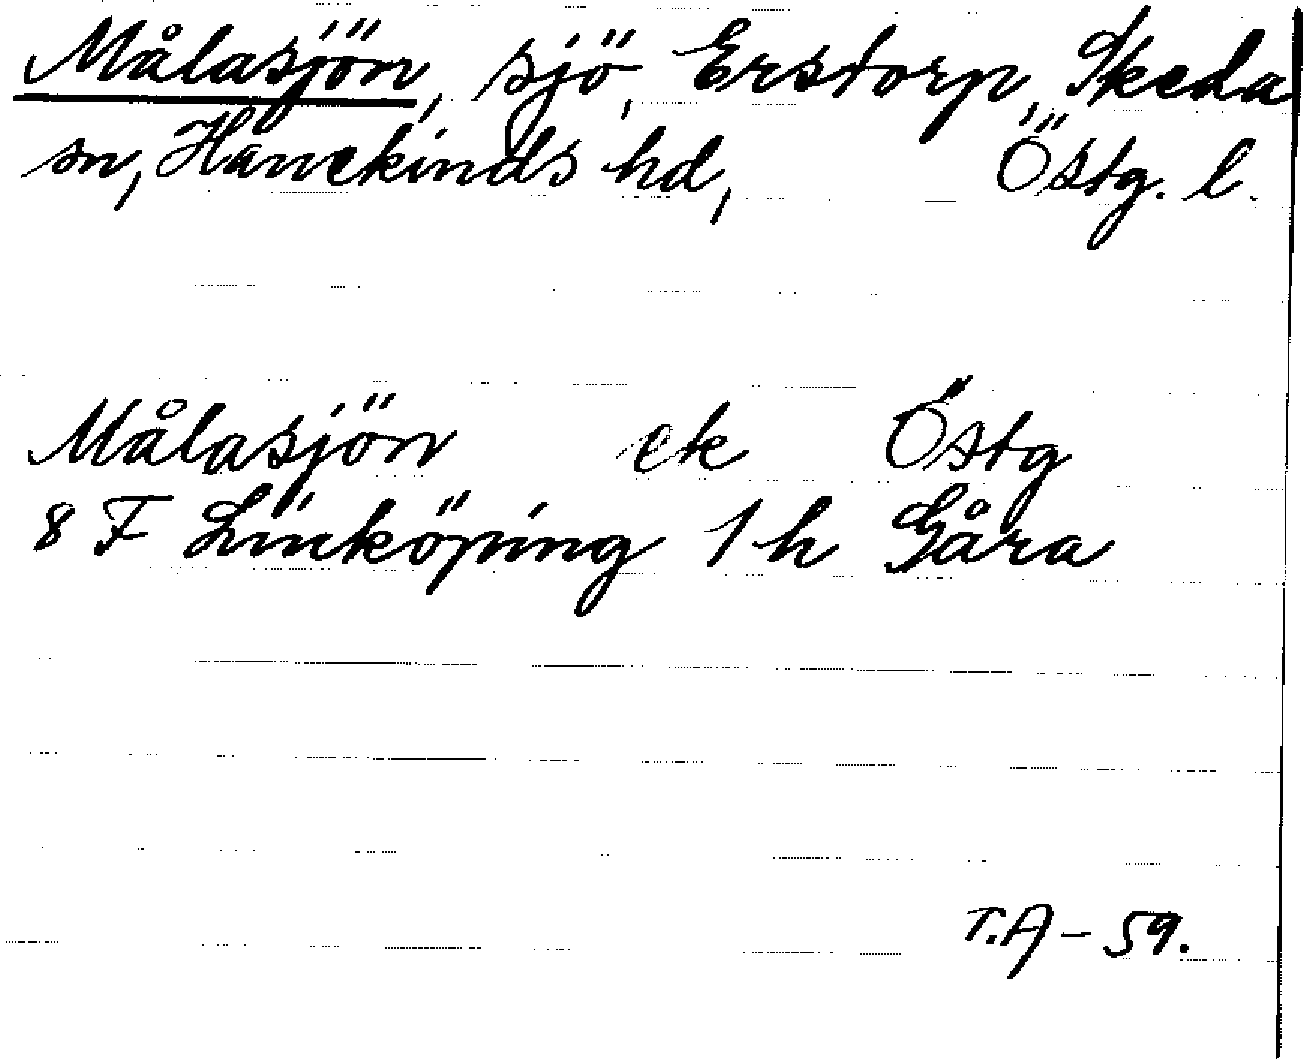 Målasjön, sjö, Erstorp, Skeda
sn, Hanekinds hd, Östg. l.
Målasjön ek Östg
8 F Linköping 1 h Gåra
T.A - 59.